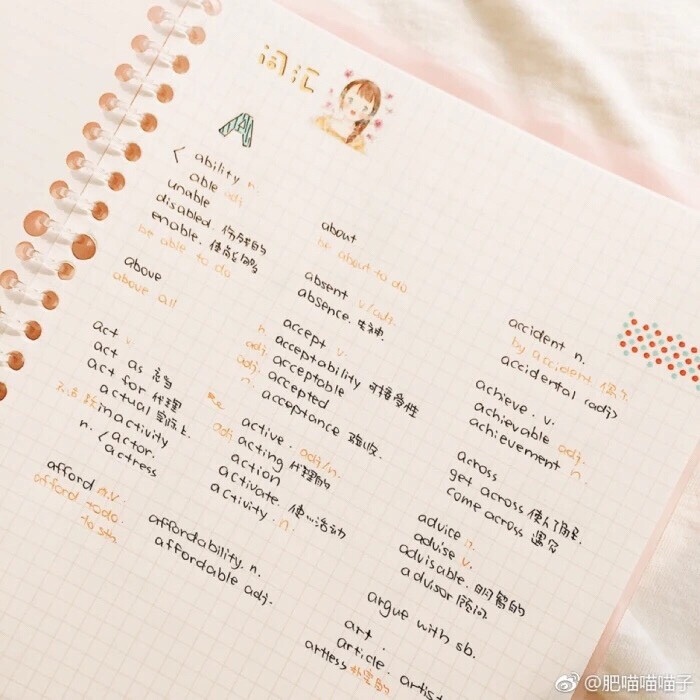 词汇
A
ability n.
able adj
unable
disabled. 伤残的
enable. 使能够
be able to do
above
above all
act v.
act as 充当
act for 代理
actual 实际上
inactivity
n. actor.
actress
afford n.v.
afford to do.
to sth
affordability. n.
affordable adj.
about
be about to do
absent v/adj.
absence. 失神.
accept v.
n. acceptability 可接受性
adj. acceptable
adj. accepted
n. acceptance 验收.
active. adj/n.
adj acting 代理的
action
activate. 使~活动
activity. n.
accident n.
by accident. 偶尔
accidental (adj)
achieve. v.
achievable adj.
achievement n.
across
get across
come across 遇见
advice n.
advise v.
advisable. 明智的
advisor 顾问
argue with sb.
art.
article. artist
artless 朴実的
@肥喵喵喵子